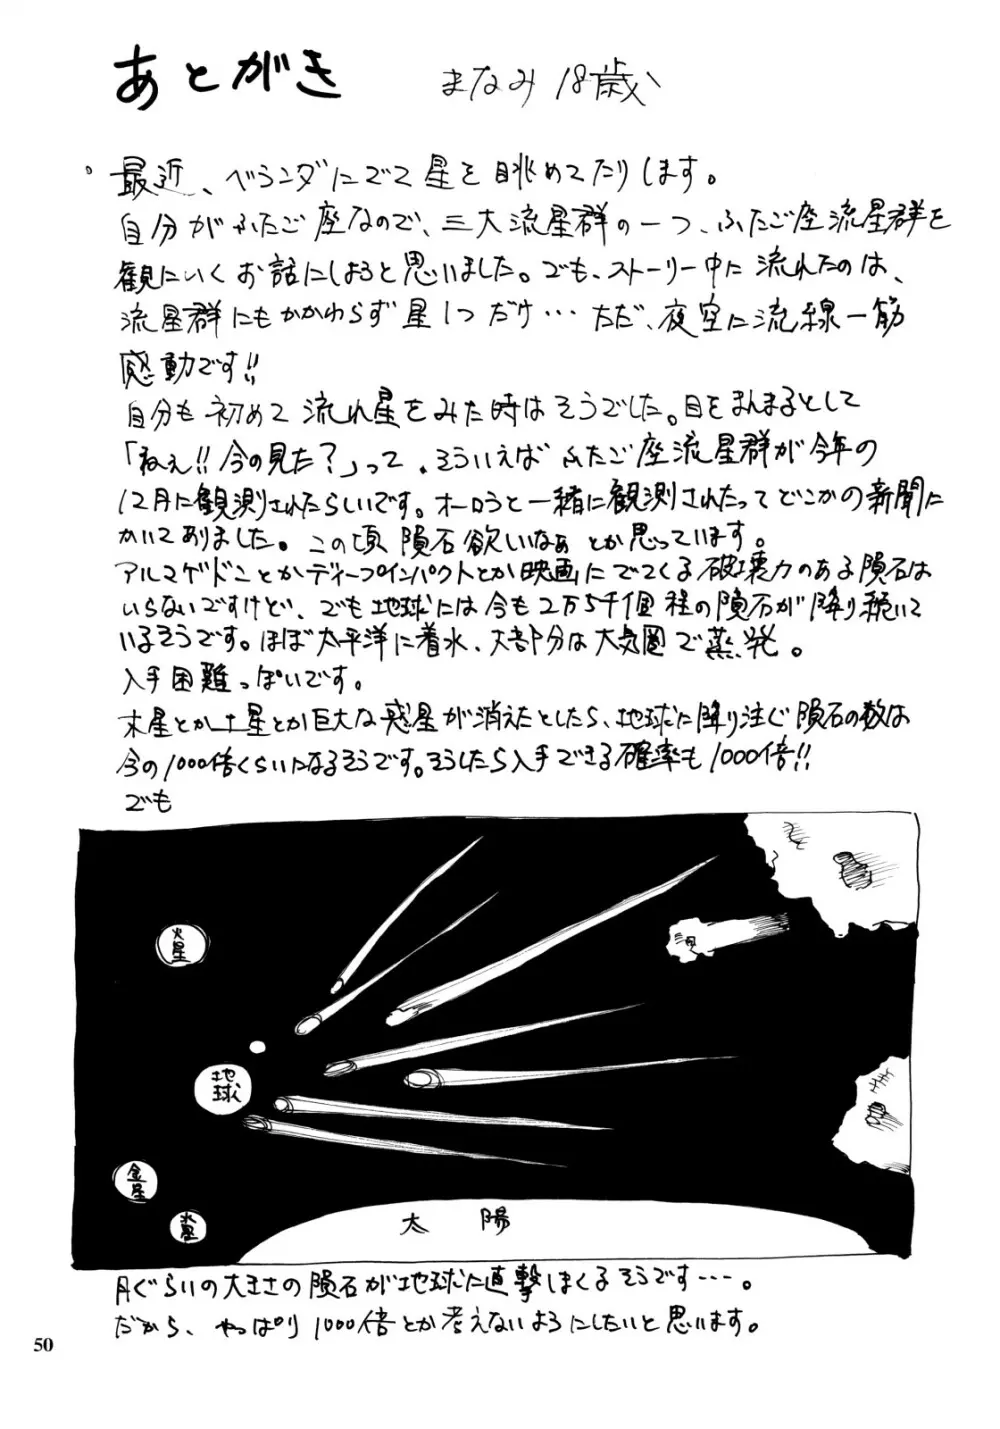 あとがき
まなみ 18歳
。最近、ベランダにでて星を眺めてたりします。
自分がふたご座なので、三大流星群の一つ、ふたご座流星群を
観にいくお話にしようと思いました。でも、ストーリー中に流れたのは、
流星群にもかかわらず星1つだけ… ただ、夜空に流線一筋
感動です!!
自分も初めて流れ星をみた時はそうでした。目をまんまるとして
「ねぇ!!今の見た?」って。そういえばふたご座流星群が今年の
12月に観測されたらしいです。オーロラと一緒に観測されたってどこかの新聞に
かいてありました。この頃隕石欲しいなぁとか思っています。
アルマゲドンとかディープインパクトとか映画にでてくる破壊力のある隕石は
いらないですけど、でも地球には今も2万5千個程の隕石が降り続いて
いるそうです。ほぼ太平洋に着水、大部分は大気圏で蒸発。
入手困難っぽいです。
木星とか土星とか巨大な惑星が消えたとしたら、地球に降り注ぐ隕石の数は
今の1000倍くらいになるそうです。そうしたら入手できる確率も1000倍!!
でも
火星
地球
金星
水星
太陽
月ぐらいの大きさの隕石が地球に直撃しまくるそうです…。
だから、やっぱり1000倍とか考えないようにしたいと思います。
50